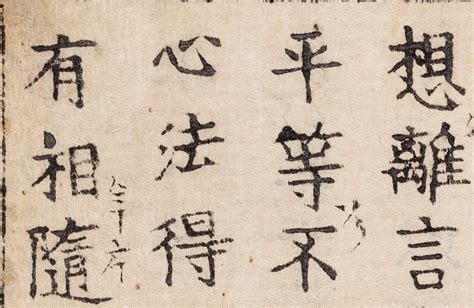 想離言
平等不
心法得
有相隨